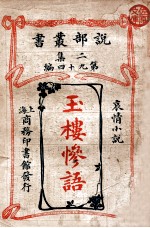 說部叢書
二集
第九十四編
哀情小說
玉樓慘語
上海
商務印書館發行